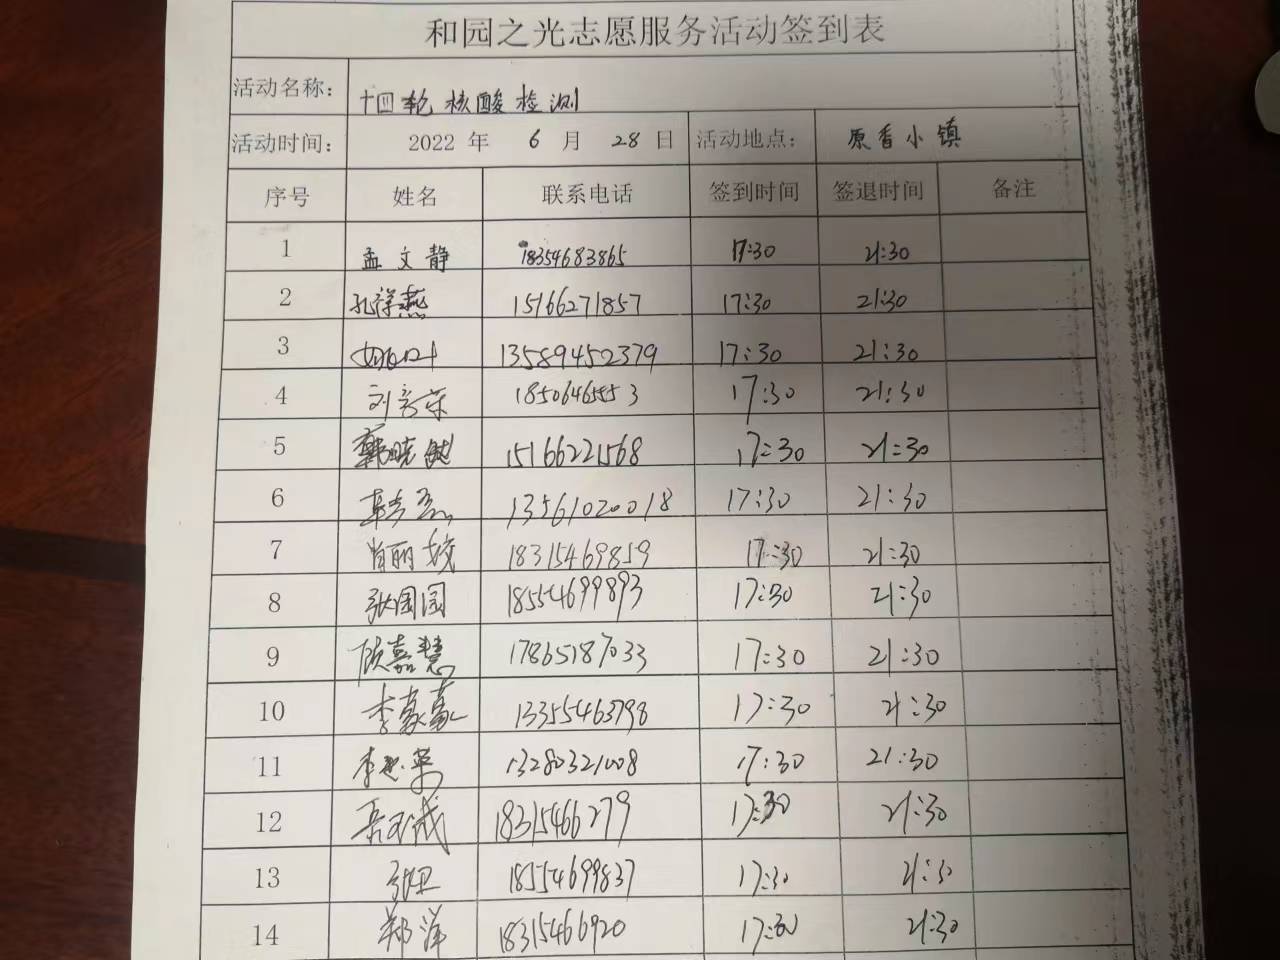 和园之光志愿服务活动签到表
活动名称： 十四轮核酸检测
活动时间： 2022 年 6 月 28 日 活动地点： 原香小镇
序号 姓名 联系电话 签到时间 签退时间 备注
1 孟文静 18354683865 17:30 21:30
2 孔祥燕 15166271857 17:30 21:30
3 姚叶 13589452379 17:30 21:30
4 刘彦荣 1850646553 17:30 21:30
5 郭晓 15166221568 17:30 21:30
6 13561020018 17:30 21:30
7 肖丽姣 18315469859 17:30 21:30
8 张国国 18554699893 17:30 21:30
9 顾嘉慧 17865187033 17:30 21:30
10 李豪豪 13355463798 17:30 21:30
11 李 英 13280321008 17:30 21:30
12 18315466279 17:30 21:30
13 张卫 18554699837 17:30 21:30
14 郑洋 18315466920 17:30 21:30